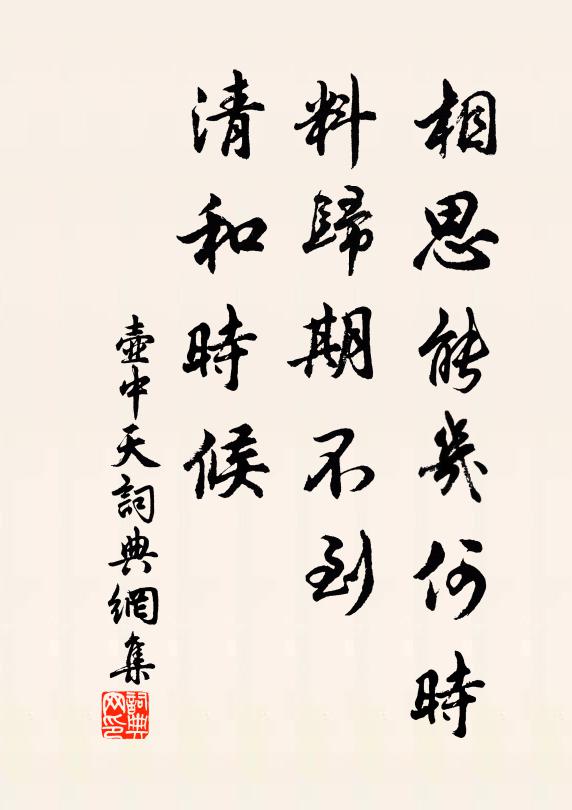 相思能幾何時
料歸期不到
清和時候
壺中天詞典網集
詞典网印